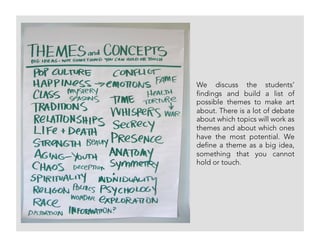 THEMES and CONCEPTS
BIG IDEAS - NOT SOMETHING YOU CAN HOLD OR TOUCH
POP CULTURE CONFLICT
HAPPINESS → EMOTIONS FAME
CLASS MYSTERY HEALTH
TIME TORTURE
TRADITIONS WHISPERS WAR
RELATIONSHIPS SECRECY
LIFE + DEATH PRESENCE
STRENGTH BEAUTY
AGING - YOUTH ANATOMY
CHAOS DECEPTION SYMMETRY
SPIRITUALITY INDIVIDUALITY
RELIGON POLITICS PSYCHOLOGY
RACE WONDER EXPLORATION
INFORMATION?
We discuss the students'
findings and build a list of
possible themes to make art
about. There is a lot of debate
about which topics will work as
themes and about which ones
have the most potential. We
define a theme as a big idea,
something that you cannot
hold or touch.